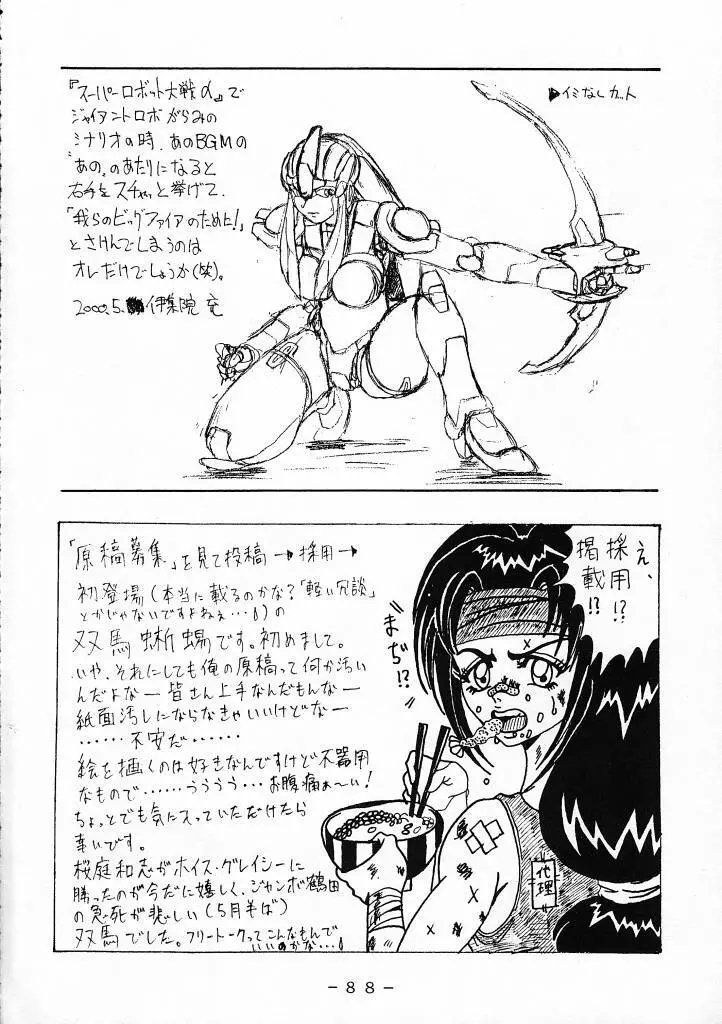 『スーパーロボット大戦α』で
ジャイアントロボがらみの
シナリオの時、あのBGMの
"あの"のあたりになると
右手をスチャッと挙げて、
「我らのビッグファイアのために!」
とさけんでしまうのは
オレだけでしょうか(笑)。
2000.5. 伊集院 竜
▶イミなしカット
「原稿募集」を見て投稿→採用→
初登場(本当に載るのかな?「軽い冗談」
とかじゃないですよねぇ…)の
双馬蜥蜴です。初めまして。
いや、それにしても俺の原稿って何か汚い
んだよなー皆さん上手なんだもんなー
紙面汚しにならなきゃいいけどなー
……不安だ……
絵を描くのは好きなんですけど不器用
なもので……うううう…お腹痛ぁ〜い!
ちょっとでも気に入っていただけたら
幸いです。
桜庭和志がホイス・グレイシーに
勝ったのが今だに嬉しく、ジャンボ鶴田
の急死が悲しい(5月半ば)
双馬でした。フリートークってこんなもんで
いいのかな…
え、
採用!?
掲載!?
まぢ!?
代理
-88-